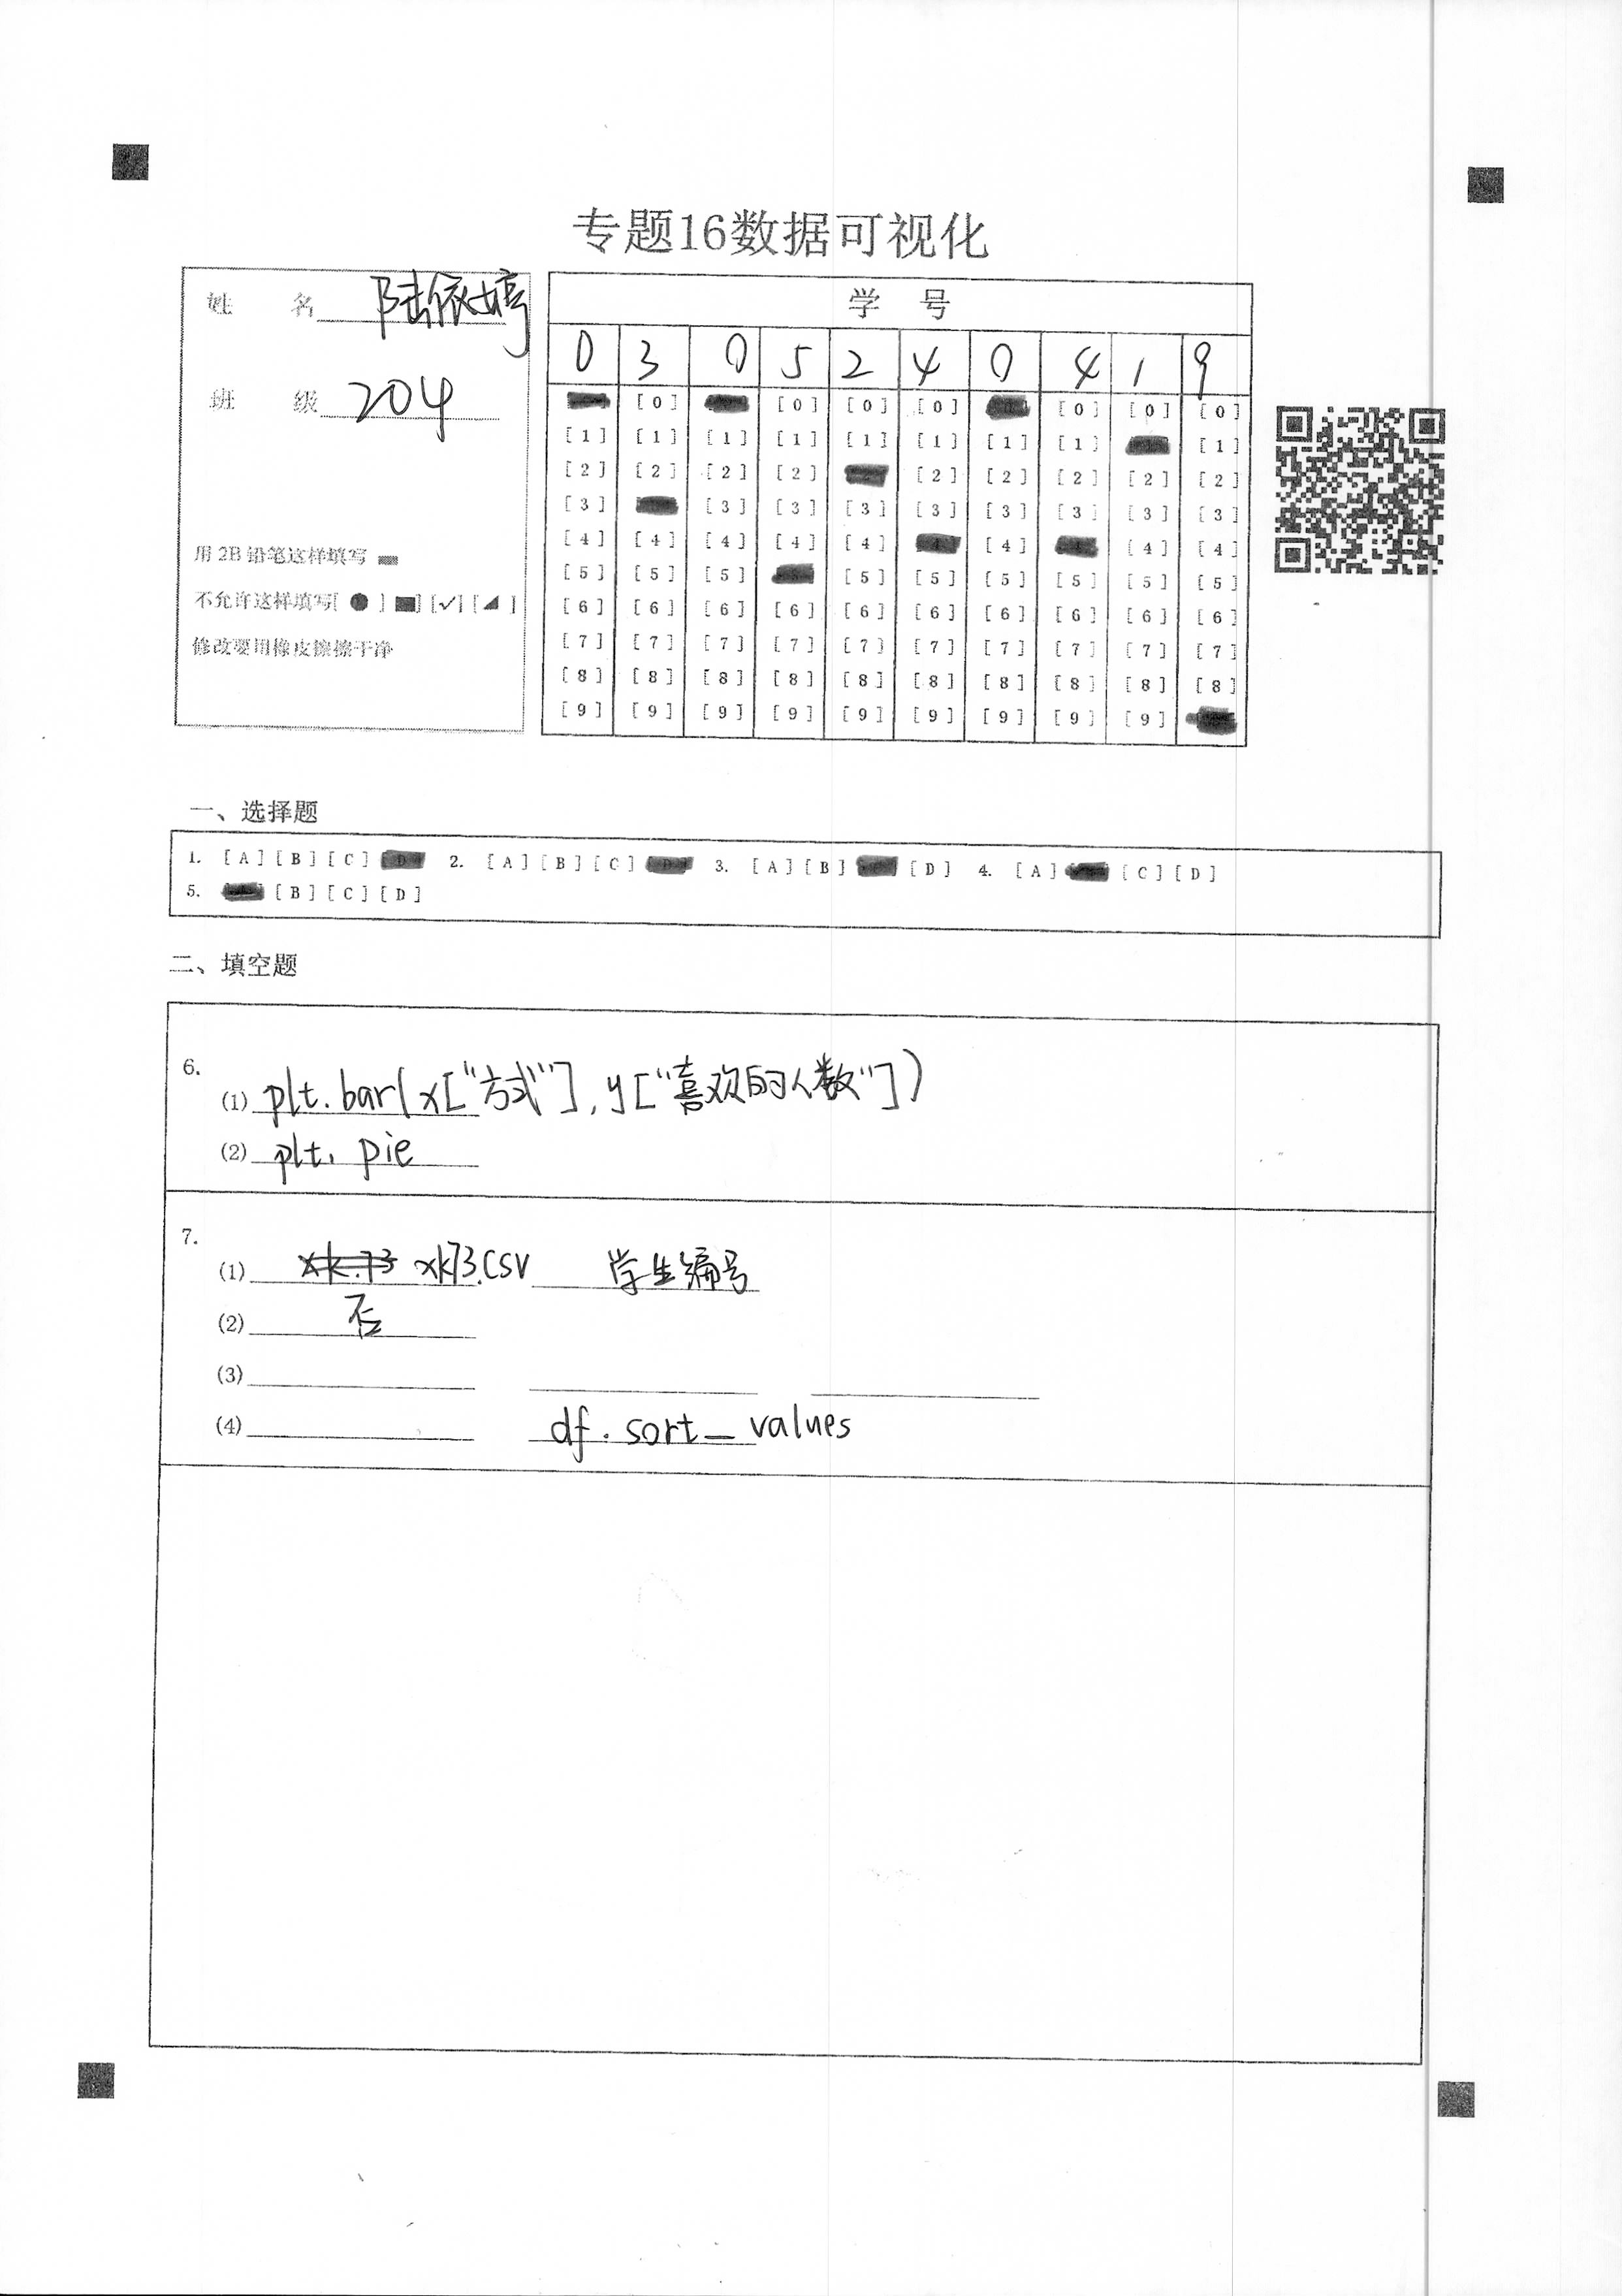 专题16数据可视化
姓 名 陆依婷
班 级 204
用 2B 铅笔这样填写
不允许这样填写[ ● ] [■] [✓] [◢ ]
修改要用橡皮擦擦干净
学 号
0 3 0 5 2 4 0 4 1 9
[0] [0] [0] [0] [0] [0]
[1] [1] [1] [1] [1] [1] [1] [1] [1]
[2] [2] [2] [2] [2] [2] [2] [2] [2]
[3] [3] [3] [3] [3] [3] [3] [3] [3]
[4] [4] [4] [4] [4] [4] [4] [4]
[5] [5] [5] [5] [5] [5] [5] [5] [5]
[6] [6] [6] [6] [6] [6] [6] [6] [6] [6]
[7] [7] [7] [7] [7] [7] [7] [7] [7] [7]
[8] [8] [8] [8] [8] [8] [8] [8] [8] [8]
[9] [9] [9] [9] [9] [9] [9] [9] [9]
一、选择题
1. [A] [B] [C] [D] 2. [A] [B] [C] [D] 3. [A] [B] [D] 4. [A] [C] [D]
5. [B] [C] [D]
二、填空题
6.
(1) plt.bar(x["方式"],y["喜欢的人数"])
(2) plt. pie
7.
(1) xk.73 xk73.csv 学生编号
(2) 否
(3)
(4) df.sort_values